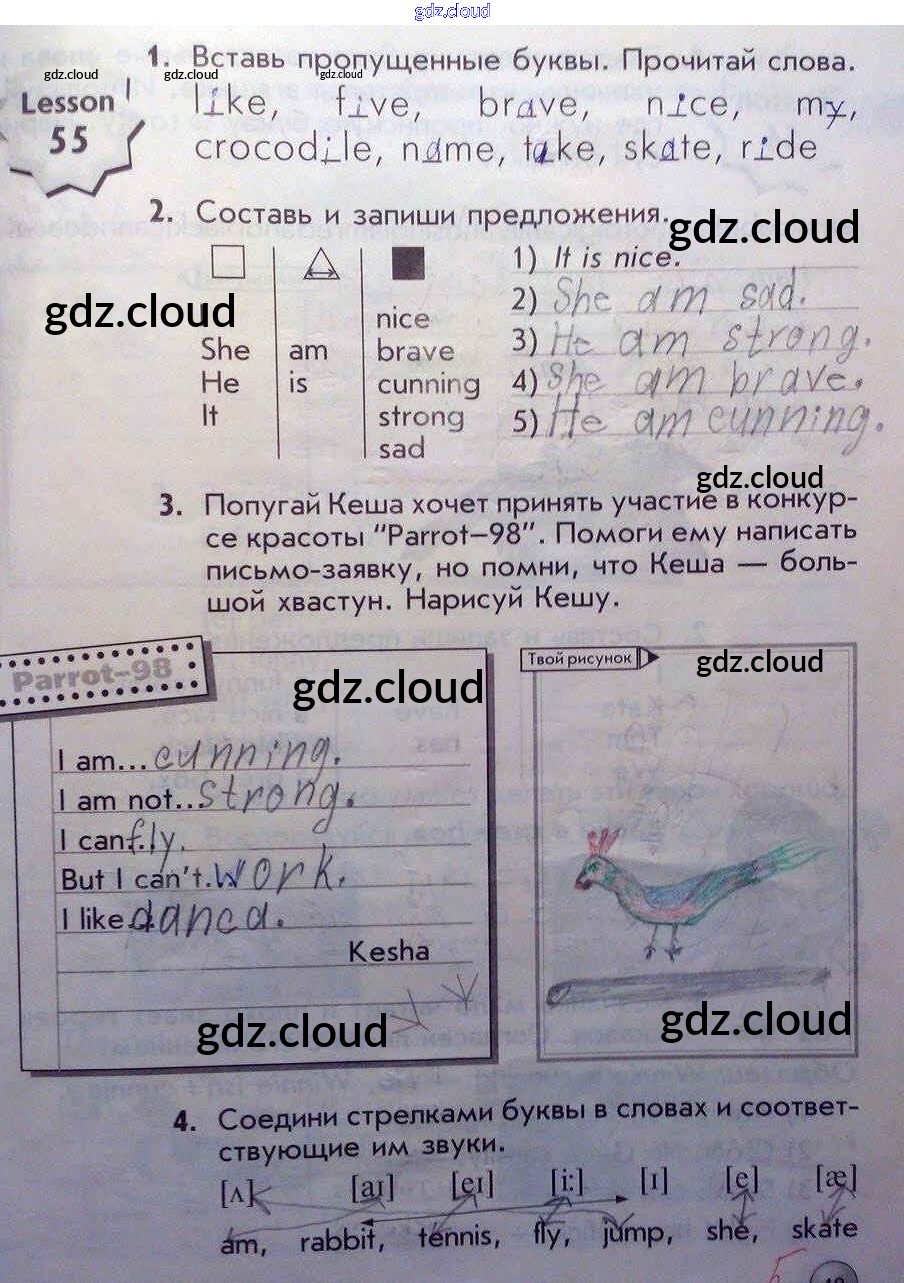 gdz.cloud
1. Вставь пропущенные буквы. Прочитай слова.
gdz.cloud gdz.cloud gdz.cloud
Lesson
55
like, five, brave, nice, my,
crocodile, name, take, skate, ride
2. Составь и запиши предложения.
gdz.cloud
1) It is nice.
2) She am sad.
gdz.cloud
nice
She am brave
3) He am strong.
He is cunning
4) She am brave.
It strong
5) He am cunning.
sad
gdz.cloud
3. Попугай Кеша хочет принять участие в конкур-
се красоты "Parrot–98". Помоги ему написать
письмо-заявку, но помни, что Кеша — боль-
шой хвастун. Нарисуй Кешу.
Parrot–98
gdz.cloud
Твой рисунок
gdz.cloud
I am... cunning.
I am not.. strong.
I can fly.
But I can't. work.
I like danca.
Kesha
gdz.cloud
gdz.cloud
4. Соедини стрелками буквы в словах и соответ-
ствующие им звуки.
[ʌ] [aɪ] [eɪ] [i:] [ɪ] [e] [æ]
am, rabbit, tennis, fly, jump, she, skate
5